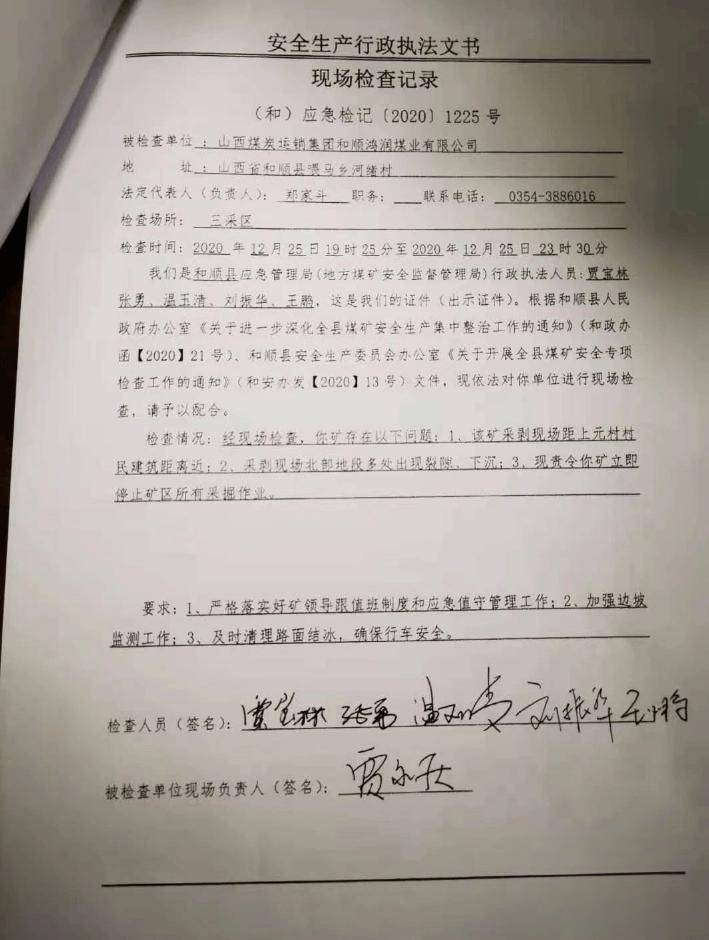 安全生产行政执法文书
现场检查记录
（和）应急检记〔2020〕1225 号
被检查单位 ：山西煤炭运销集团和顺鸿润煤业有限公司
地 址：山西省和顺县喂马乡河绪村
法定代表人（负责人）： 郑家斗 职务： 联系电话： 0354-3886016
检查场所： 三采区
检查时间：2020 年 12 月 25 日 19 时 25 分至 2020 年 12 月 25 日 23 时 30 分
我们是和顺县应急管理局(地方煤矿安全监督管理局)行政执法人员：贾宝林
张勇、温玉清、刘振华、王鹏，这是我们的证件（出示证件）。根据和顺县人民
政府办公室《关于进一步深化全县煤矿安全生产集中整治工作的通知》（和政办
函【2020】21 号）、和顺县安全生产委员会办公室《关于开展全县煤矿安全专项
检查工作的通知》（和安办发【2020】13 号）文件，现依法对你单位进行现场检
查，请予以配合。
检查情况：经现场检查，你矿存在以下问题：1、该矿采剥现场距上元村村
民建筑距离近；2、采剥现场北部地段多处出现裂隙、下沉；3、现责令你矿立即
停止矿区所有采掘作业。
要求：1、严格落实好矿领导跟值班制度和应急值守管理工作；2、加强边坡
监测工作；3、及时清理路面结冰，确保行车安全。
检查人员（签名）：贾宝林 张勇 温玉清 刘振华 王鹏
被检查单位现场负责人（签名）：